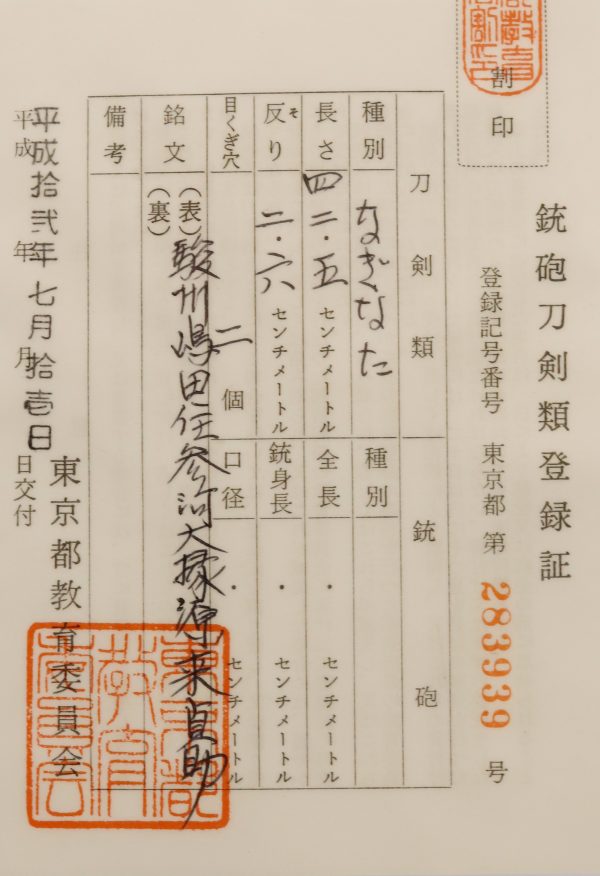 割印
銃砲刀剣類登録証
登録記号番号 東京都 第 283939 号
刀剣類 銃砲
種別 なぎなた 種別
長さ 四二・五 センチメートル 全長 ・ センチメートル
反り そ 二・六 センチメートル 銃身長 ・ センチメートル
目くぎ穴 二 個 口径 ・ センチメートル
銘文 (表) 駿州嶋田住参河大掾源来貞助
(裏)
備考
平成拾弐年七月拾壱日
平成 年 月 日交付
東京都教育委員会